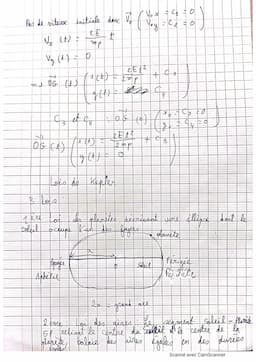 Pas de vitesse initiale donc V₀ ( V₀x = C₁ = 0
V₀y = C₂ = 0 )
Vx (t) = eE/mp t
Vy (t) = 0
=> OG (t) ( x(t) = eEt²/2mp + C3
y(t) = C4 )
C3 et C4 : OG (0) ( x0 = C3 = 0
y0 = C4 = 0 )
OG (t) ( x(t) = eEt²/2mp
y(t) = 0
Lois de Kepler
3 Lois
1ère Loi les planètes décrivent une ellipse dont le
Soleil occupe l'un des foyers
planète
a
Apogée
Aphélie
0
Soleil
Périgée
Périhélie
2a = grand axe
2ème Loi des aires. Le segment Soleil - planète
et reliant le centre du Soleil et le centre de la
planète balaie des aires égales en des durées
Scanné avec CamScanner